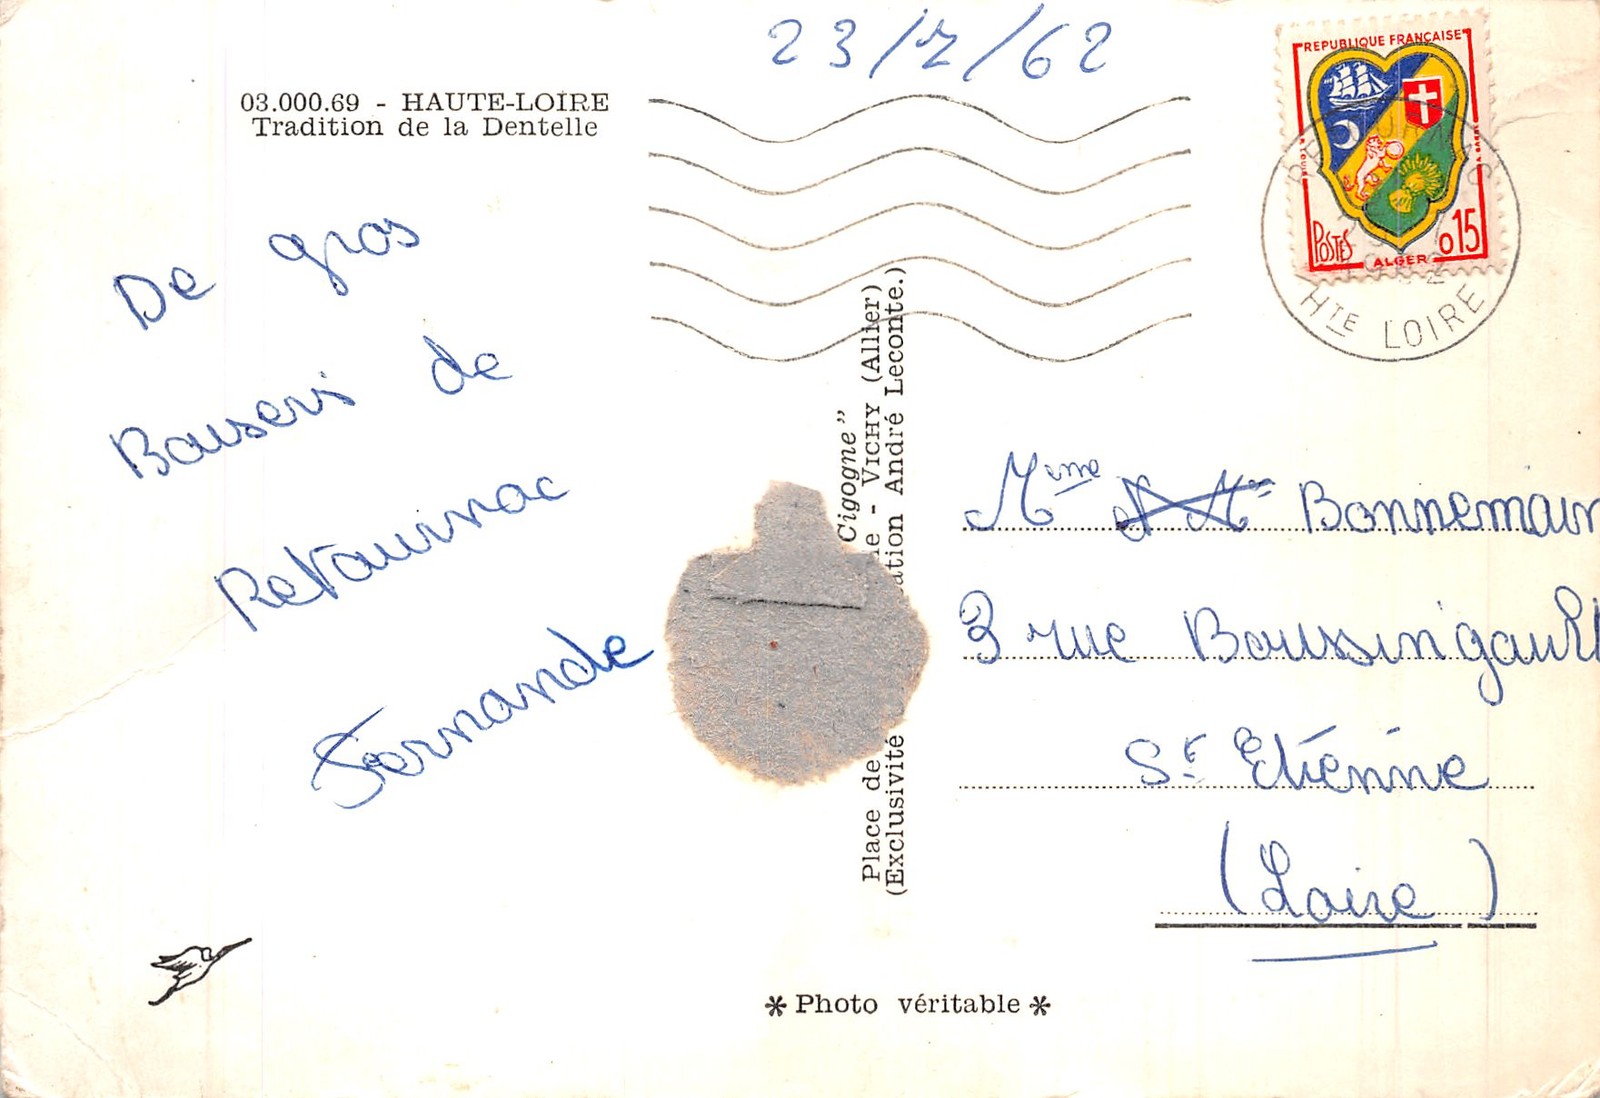 23/7/62
03.000.69 - HAUTE-LOIRE
Tradition de la Dentelle
De gros
Bausers de
Retournac
Fernande
REPUBLIQUE FRANÇAISE
POSTES
ALGER
0,15
Hte LOIRE
Cigogne"
Place de
- VICHY (Allier)
(Exclusivité
ation André Leconte.)
Mme Bonnemain
3 rue Boussingault
St Etienne
(Loire)
* Photo véritable *